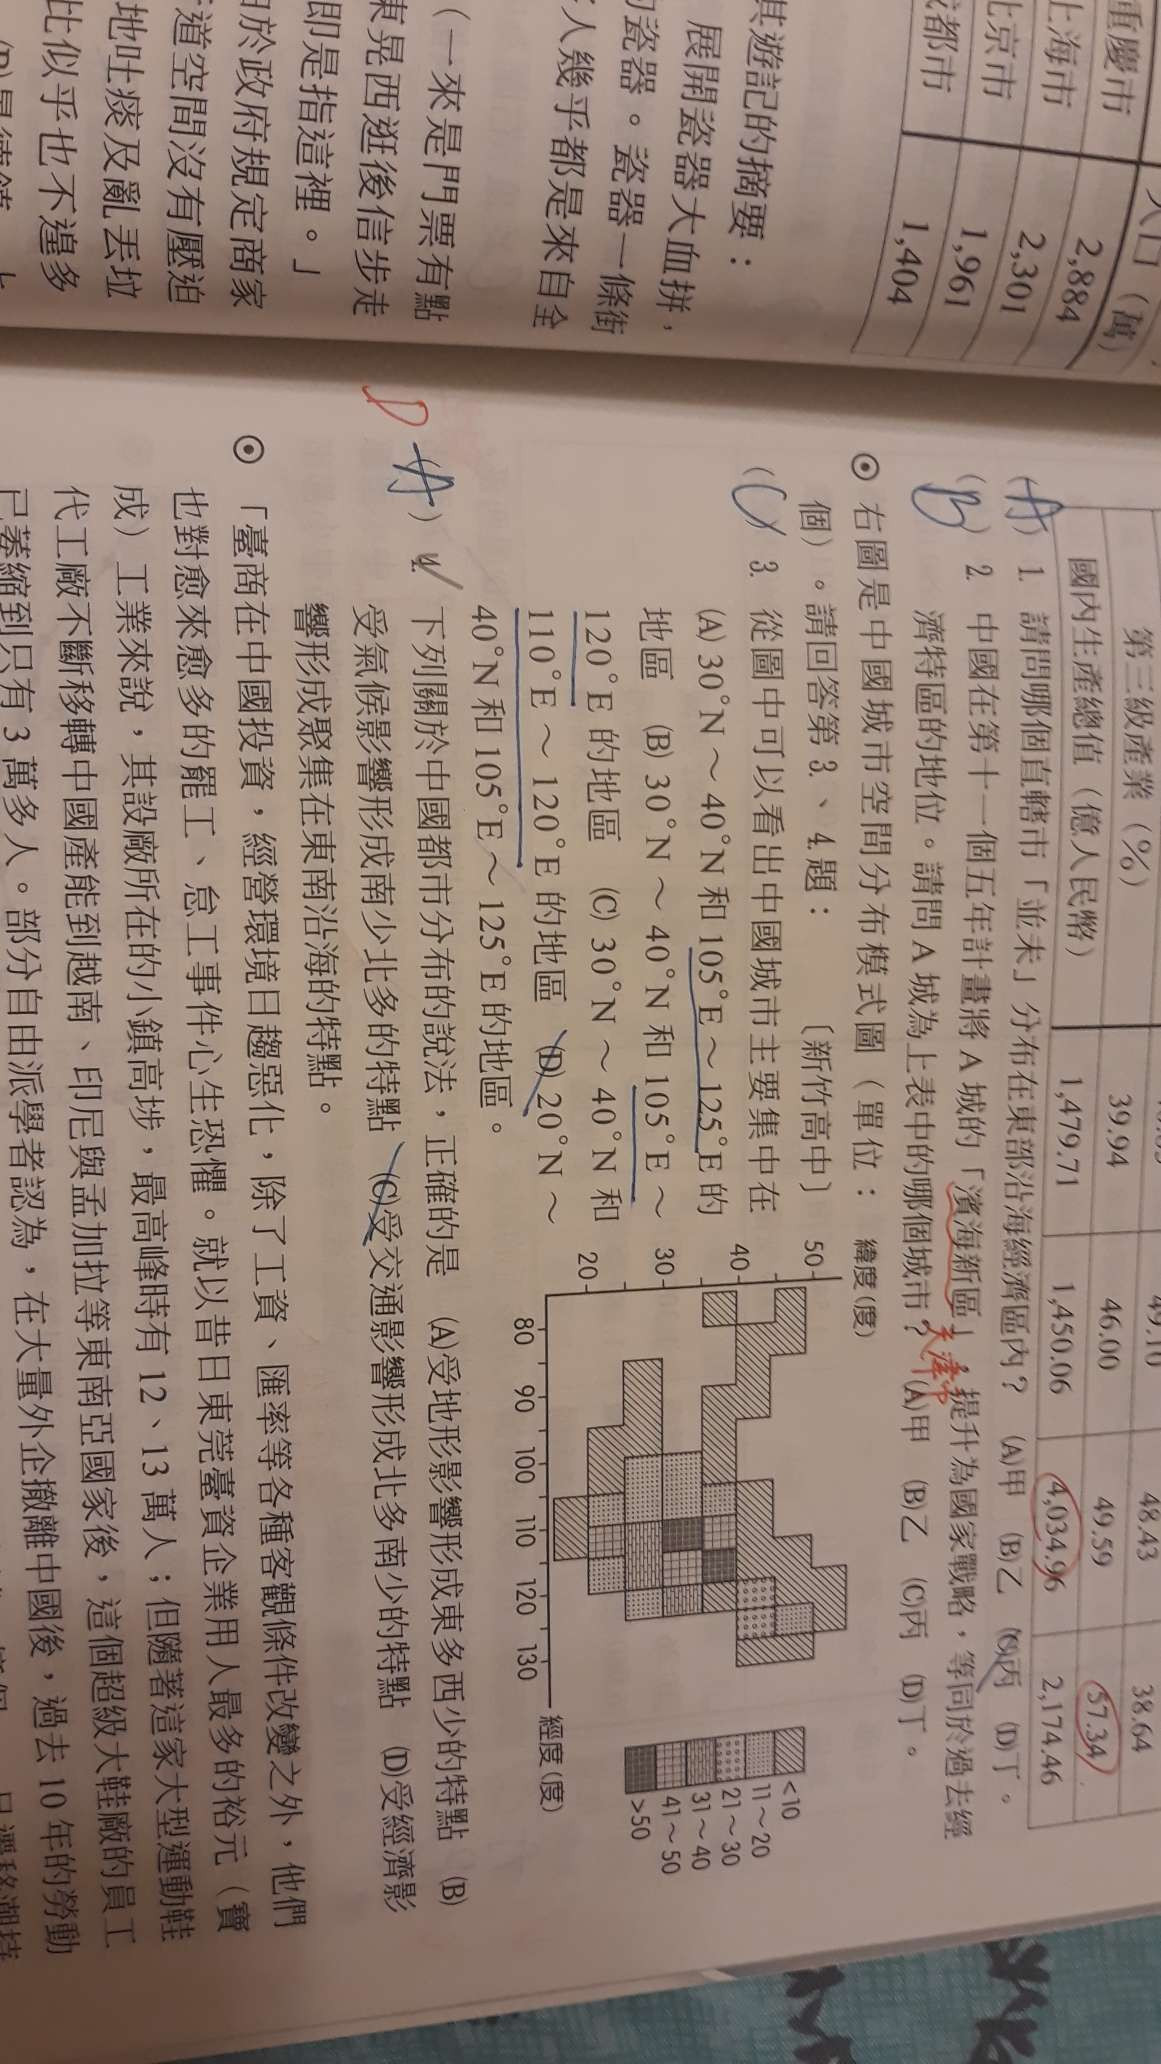 重慶市
上海市 2,884
北京市 2,301
都市 1,961
1,404
人口（萬）
其遊記的摘要：
展開瓷器大血拼，
瓷器。瓷器一條街
人幾乎都是來自全
（一來是門票有點
東晃西逛後信步走
即是指這裡。」
於政府規定商家
道空間沒有壓迫
地吐痰及亂丟垃
比似乎也不遑多
第三級產業（%） 39.94 46.00 49.59 57.34
48.43 38.64
國內生產總值（億人民幣） 1,479.71 1,450.06 4,034.96 2,174.46
（A）1. 請問哪個直轄市「並未」分布在東部沿海經濟區內？ (A)甲 (B)乙 (C)丙 (D)丁。
（B）2. 中國在第十一個五年計畫將 A 城的「濱海新區」，提升為國家戰略，等同於過去經
天津市
濟特區的地位。請問 A 城為上表中的哪個城市？ (A)甲 (B)乙 (C)丙 (D)丁。
⊙ 右圖是中國城市空間分布模式圖（單位：
個）。請回答第 3.、4.題： 〔新竹高中〕
（C）3. 從圖中可以看出中國城市主要集中在
(A) 30°N～40°N 和 105°E～125°E 的
地區 (B) 30°N～40°N 和 105°E～
120°E 的地區 (C) 30°N～40°N 和
110°E～120°E 的地區 (D) 20°N～
40°N 和 105°E～125°E 的地區。
緯度(度)
50
40
30
20
80 90 100 110 120 130 經度(度)
<10
11～20
21～30
31～40
41～50
>50
D
（A）4. 下列關於中國都市分布的說法，正確的是 (A)受地形影響形成東多西少的特點 (B)
受氣候影響形成南少北多的特點 (C)受交通影響形成北多南少的特點 (D)受經濟影
響形成聚集在東南沿海的特點。
⊙ 「臺商在中國投資，經營環境日趨惡化，除了工資、匯率等各種客觀條件改變之外，他們
也對愈來愈多的罷工、怠工事件心生恐懼。就以昔日東莞臺資企業用人最多的裕元（寶
成）工業來說，其設廠所在的小鎮高埗，最高峰時有 12、13 萬人；但隨著這家大型運動鞋
代工廠不斷移轉中國產能到越南、印尼與孟加拉等東南亞國家後，這個超級大鞋廠的員工
已萎縮到只有 3 萬多人。部分自由派學者認為，在大量外企撤離中國後，過去 10 年的勞動